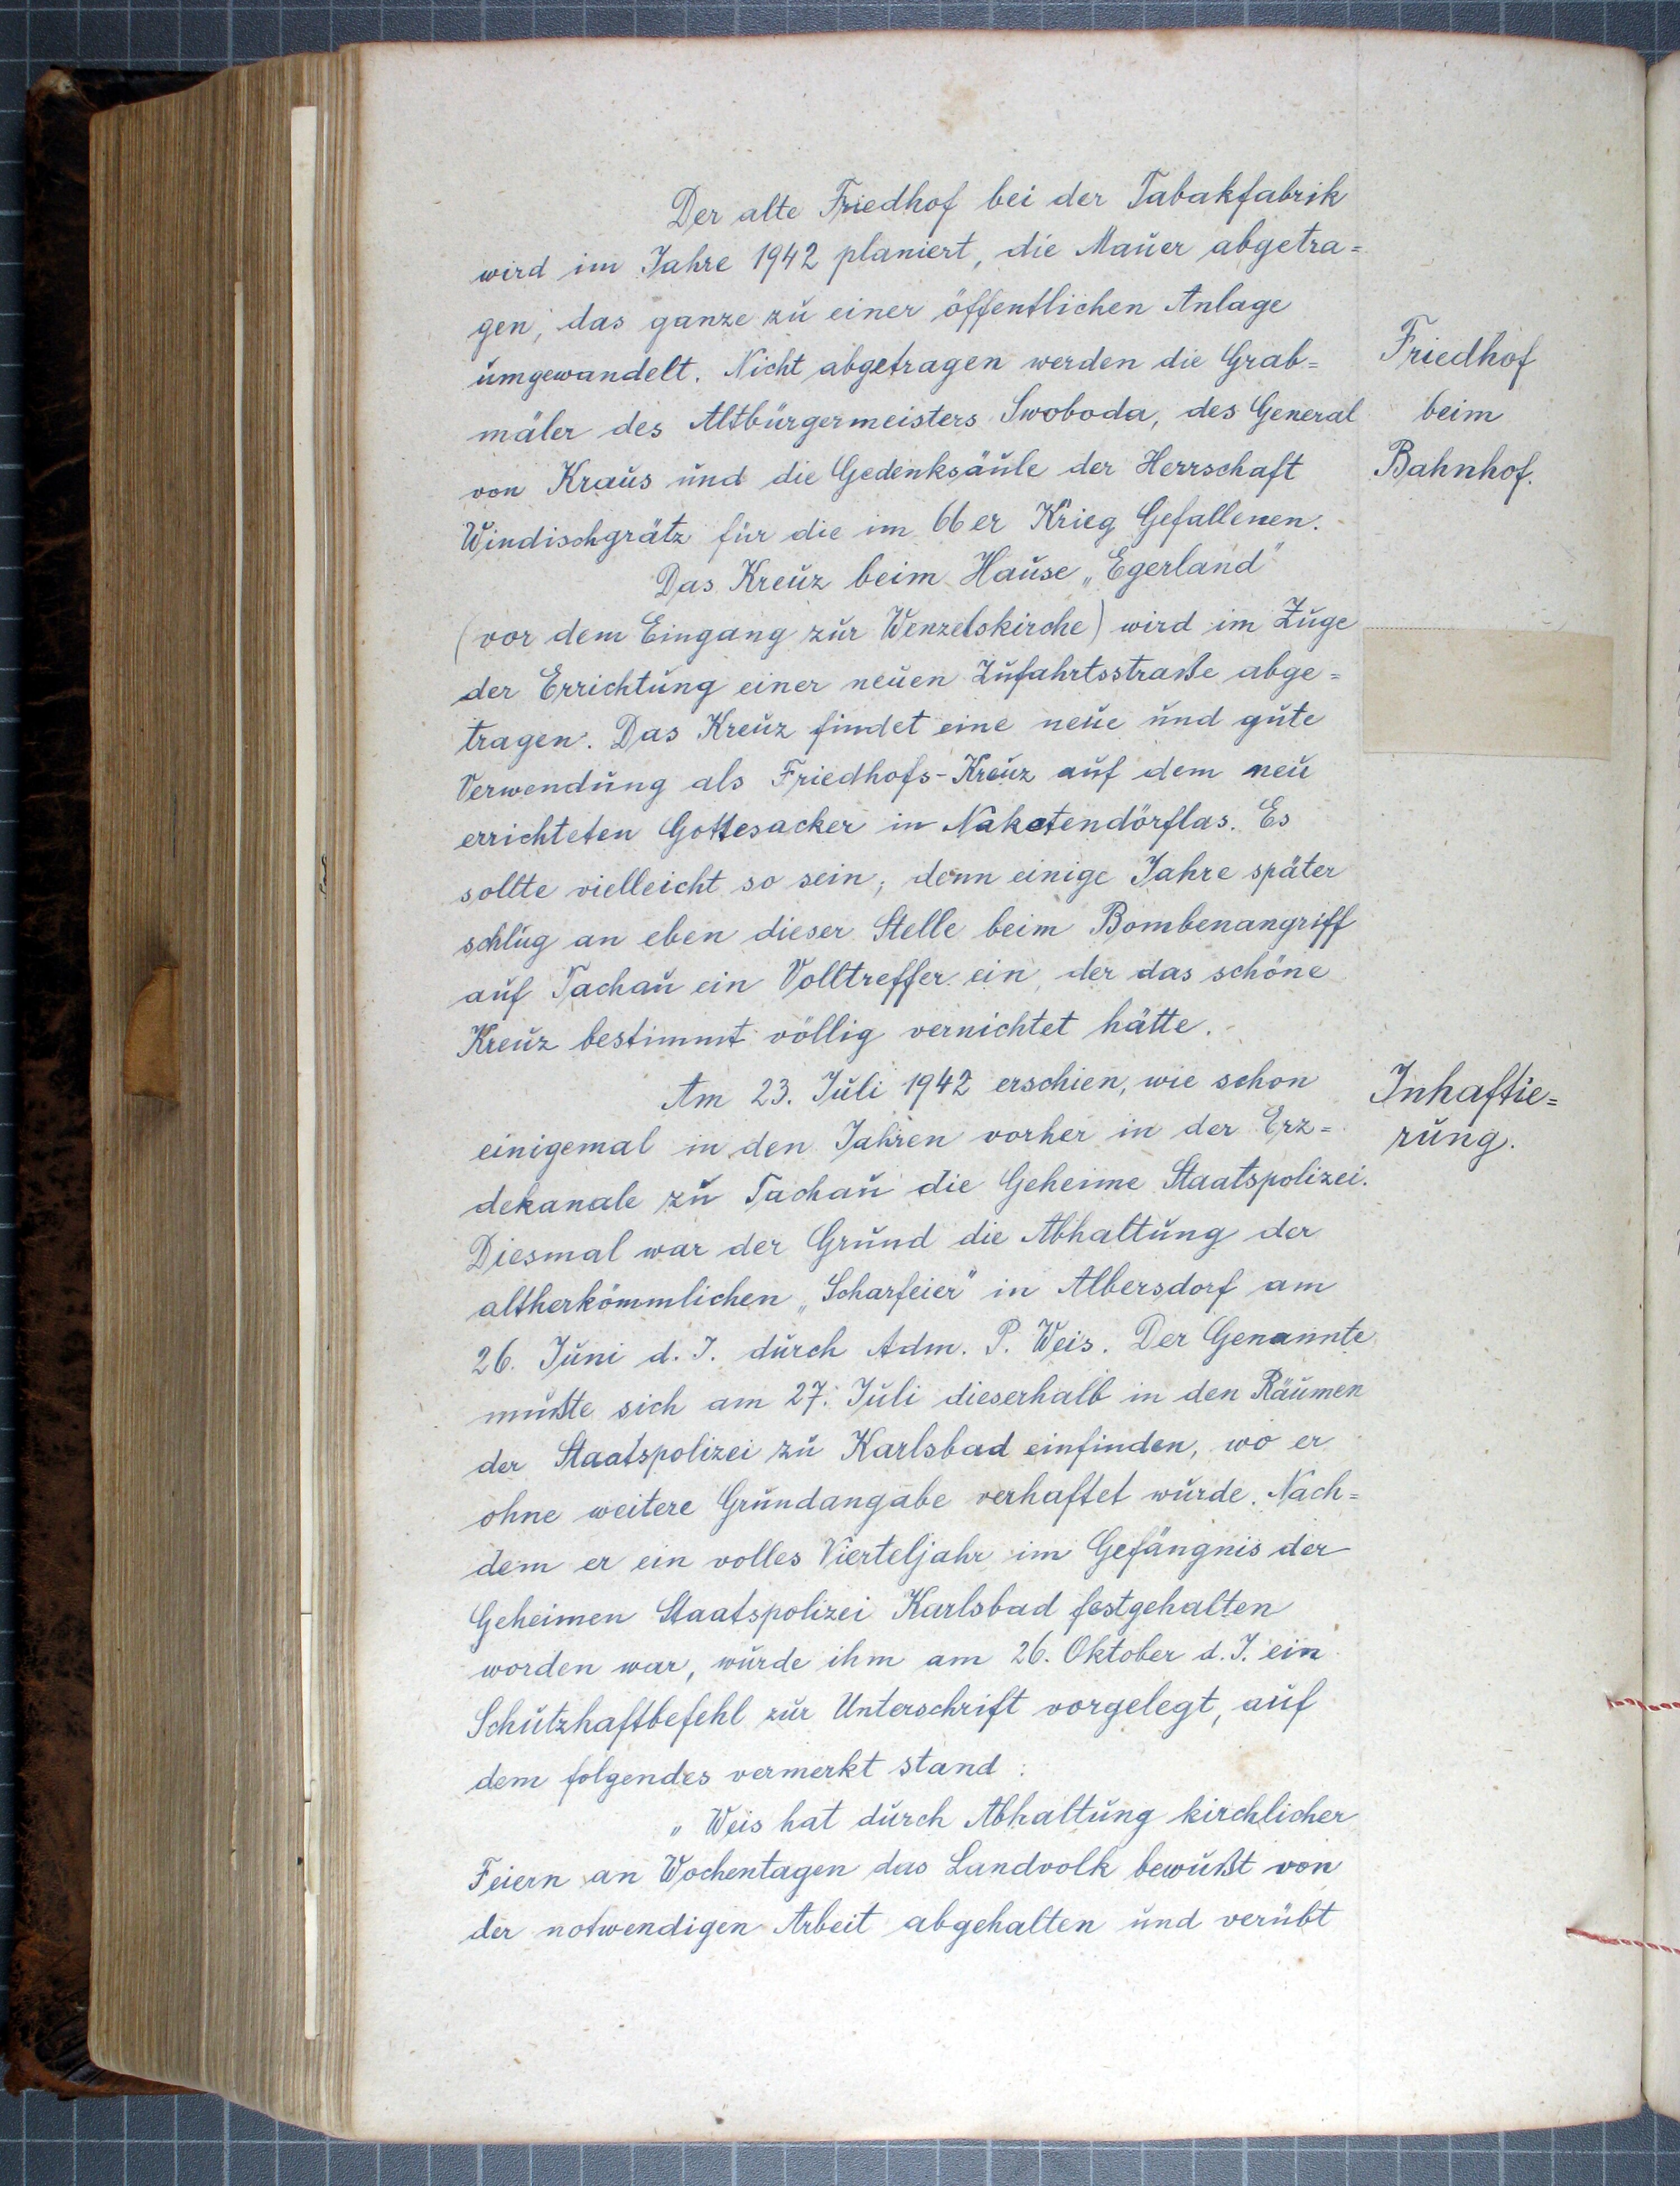 Der alte Friedhof bei der Tabakfabrik
wird im Jahre 1942 planiert, die Mauer abgetra=
gen, das ganze zu einer öffentlichen Anlage
umgewandelt. Nicht abgetragen werden die Grab=
mäler des Altbürgermeisters Swoboda, des General
von Kraus und die Gedenksäule der Herrschaft
Windischgrätz für die im 66er Krieg Gefallenen.
Friedhof
beim
Bahnhof.
Das Kreuz beim Hause „Egerland"
(vor dem Eingang zur Wenzelskirche) wird im Zuge
der Errichtung einer neuen Zufahrtsstraße abge=
tragen. Das Kreuz findet eine neue und gute
Verwendung als Friedhofs-Kreuz auf dem neu
errichteten Gottesacker in Naketendörflas. Es
sollte vielleicht so sein; denn einige Jahre später
schlug an eben dieser Stelle beim Bombenangriff
auf Tachau ein Volltreffer ein, der das schöne
Kreuz bestimmt völlig vernichtet hätte.
Am 23. Juli 1942 erschien, wie schon
einigemal in den Jahren vorher in der Erz=
dekanale zu Tachau die Geheime Staatspolizei.
Inhaftie=
rung.
Diesmal war der Grund die Abhaltung der
altherkömmlichen „Scharfeier" in Albersdorf am
26. Juni d. J. durch Adm. P. Weis. Der Genannte
mußte sich am 27. Juli dieserhalb in den Räumen
der Staatspolizei zu Karlsbad einfinden, wo er
ohne weitere Grundangabe verhaftet wurde. Nach=
dem er ein volles Vierteljahr im Gefängnis der
Geheimen Staatspolizei Karlsbad festgehalten
worden war, wurde ihm am 26. Oktober d. J. ein
Schutzhaftbefehl zur Unterschrift vorgelegt, auf
dem folgendes vermerkt stand:
„Weis hat durch Abhaltung kirchlicher
Feiern an Wochentagen das Landvolk bewußt von
der notwendigen Arbeit abgehalten und verübt